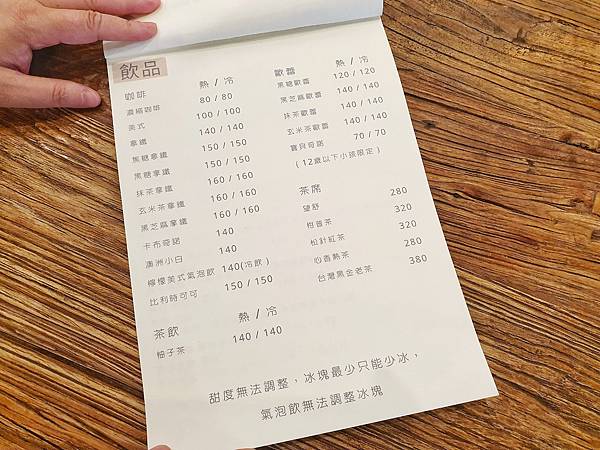 飲品
咖啡 熱 / 冷
濃縮咖啡 80 / 80
美式 100 / 100
拿鐵 140 / 140
焦糖拿鐵 150 / 150
黑糖拿鐵 150 / 150
抹茶拿鐵 160 / 160
玄米茶拿鐵 160 / 160
黑芝麻拿鐵 160 / 160
卡布奇諾 140
澳洲小白 140
檸檬美式氣泡飲 140(冷飲)
比利時可可 150 / 150
茶飲 熱 / 冷
柚子茶 140 / 140
歐蕾 熱 / 冷
黑糖歐蕾 120 / 120
黑芝麻歐蕾 140 / 140
抹茶歐蕾 140 / 140
玄米茶歐蕾 140 / 140
寶貝奇諾 70 / 70
(12歲以下小孩限定)
茶席
望舒 280
柑普茶 320
松針紅茶 320
心香熟茶 280
台灣黑金老茶 380
甜度無法調整,冰塊最少只能少冰,
氣泡飲無法調整冰塊